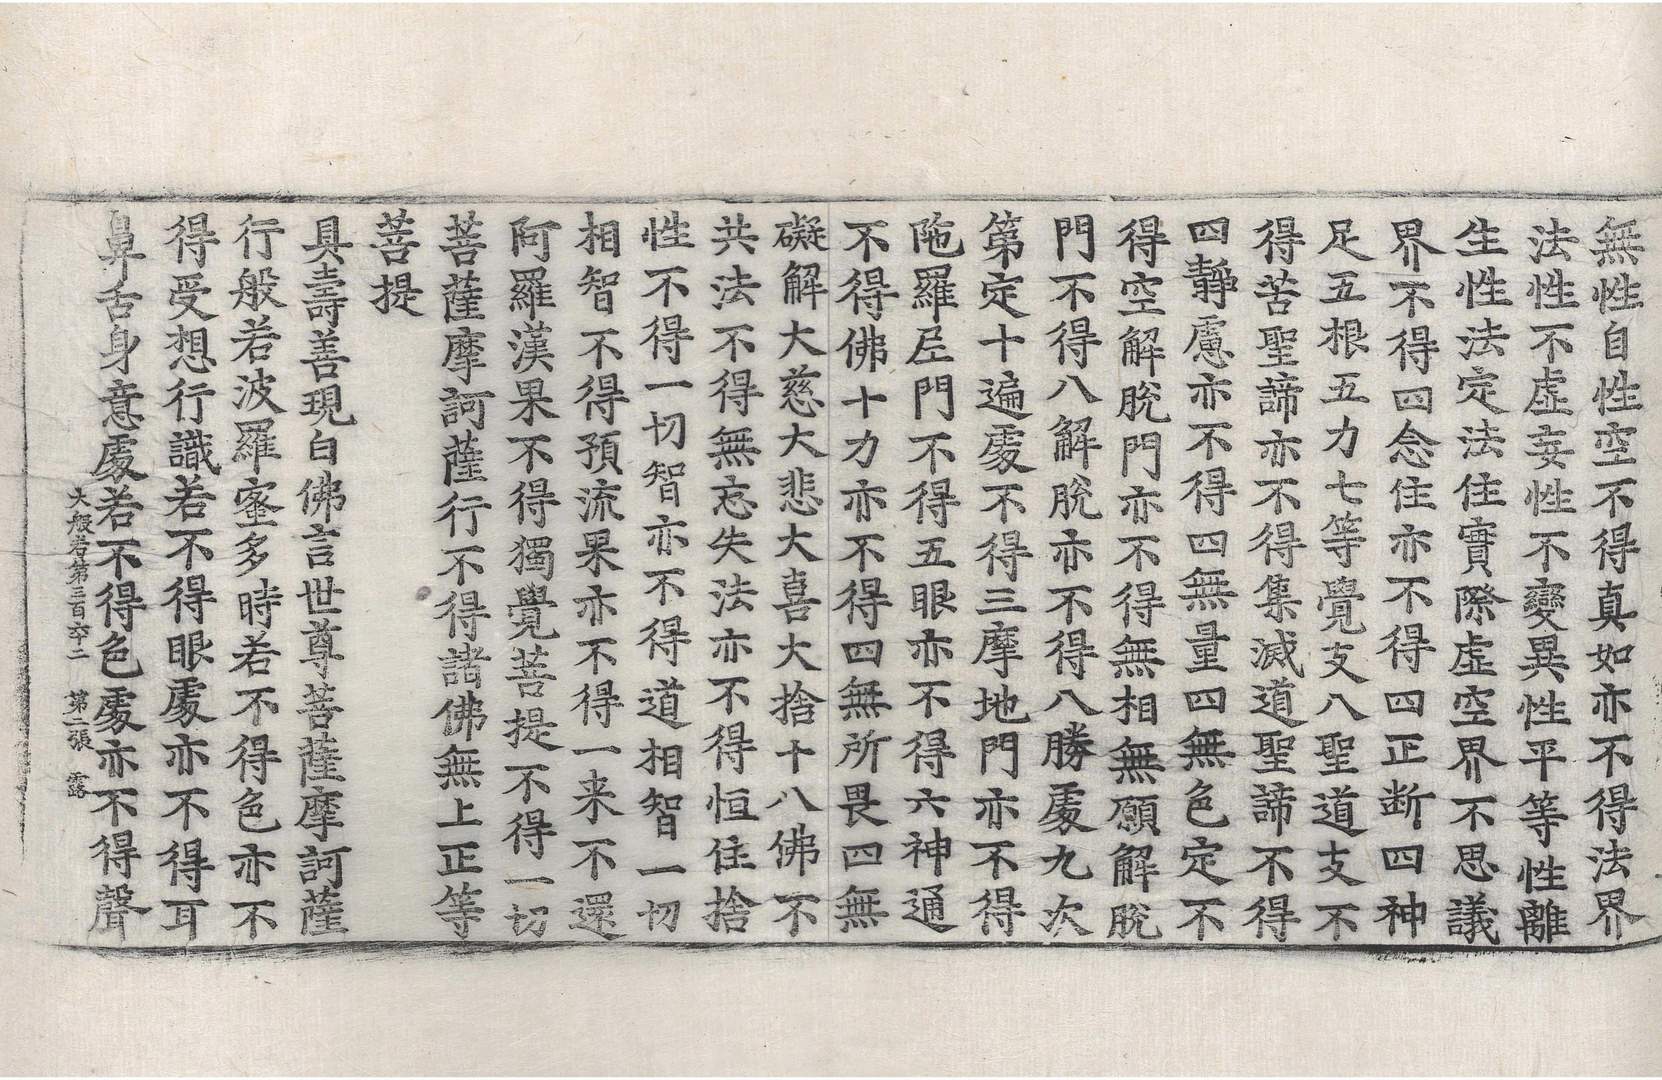 無性自性空不得真如亦不得法界
法性不虛妄性不變異性平等性離
生性法定法住實際虛空界不思議
界不得四念住亦不得四正断四神
足五根五力七等覺支八聖道支不
得苦聖諦亦不得集滅道聖諦不得
四靜慮亦不得四無量四無色定不
得空解脫門亦不得無相無願解脫
門不得八解脫亦不得八勝處九次
第定十遍處不得三摩地門亦不得
陁羅尼門不得五眼亦不得六神通
不得佛十力亦不得四無所畏四無
礙解大慈大悲大喜大捨十八佛不
共法不得無忘失法亦不得恒住捨
性不得一切智亦不得道相智一切
相智不得預流果亦不得一来不還
阿羅漢果不得獨覺菩提不得一切
菩薩摩訶薩行不得諸佛無上正等
菩提
具壽善現白佛言世尊菩薩摩訶薩
行般若波羅蜜多時若不得色亦不
得受想行識若不得眼處亦不得耳
鼻舌身意處若不得色處亦不得聲
大般若第三百卒二 第二張 露